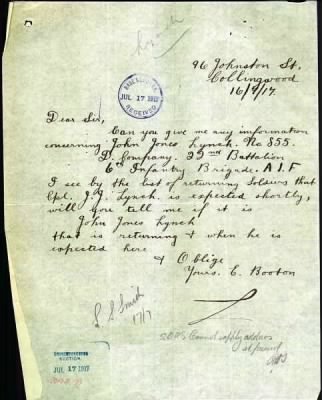 96 Johnston St.
Collingwood
16/7/17.
BASE RECORDS
JUL 17 1917
RECEIVED
Dear Sir,
Can you give me any information
concerning John Jones Lynch. No 855.
D. Company. 22nd Battalion
6th Infantry Brigade. A.I.F
I see by the list of returning Soldiers that
Cpl. J. J. Lynch. is expected shortly,
will you tell me if it is
John Jones Lynch
that is returning & when he is
expected here
& Oblige
Yours. E. Booton
L. S. Smith
17/7
JUL 17 1917
Cannot supply address